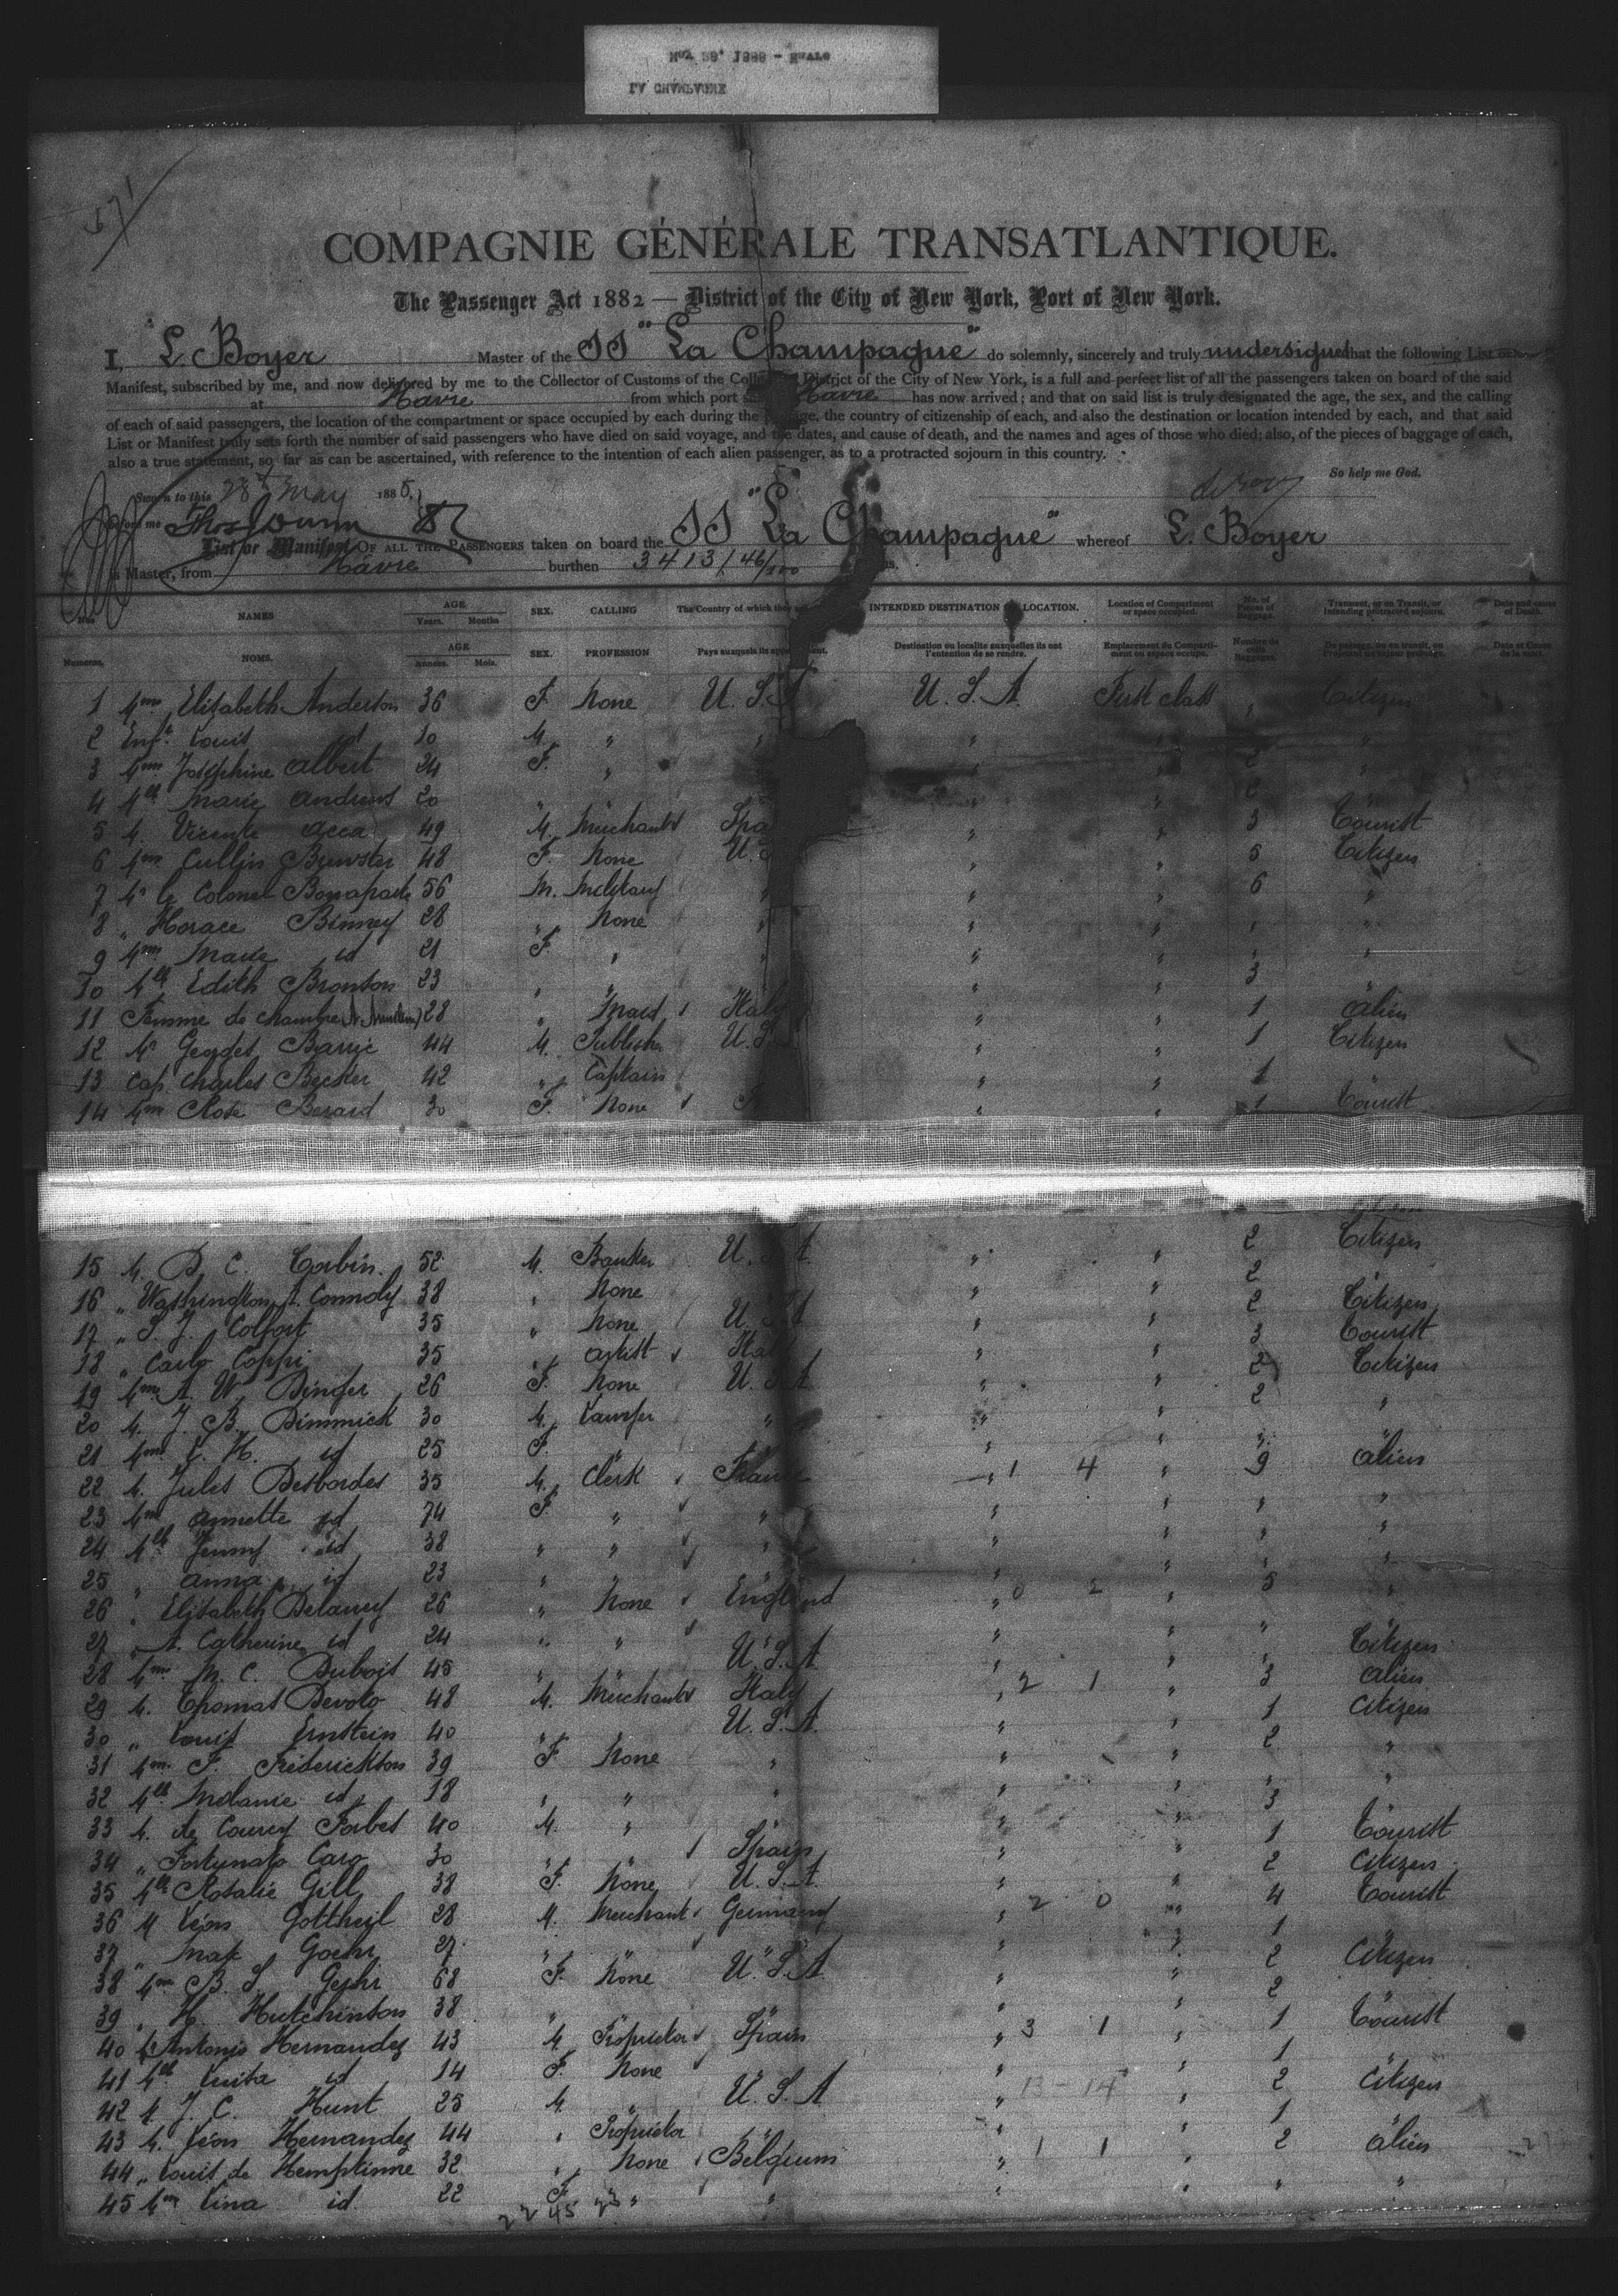 COMPAGNIE GÉNÉRALE TRANSATLANTIQUE.
The Passenger Act 1882 — District of the City of New York, Port of New York.
I, L. Boyer Master of the SS "La Champagne" do solemnly, sincerely and truly undersigned that the following List or
Manifest, subscribed by me, and now delivered by me to the Collector of Customs of the Collection District of the City of New York, is a full and perfect list of all the passengers taken on board of the said
at Havre from which port Havre has now arrived; and that on said list is truly designated the age, the sex, and the calling
of each of said passengers, the location of the compartment or space occupied by each during the passage, the country of citizenship of each, and also the destination or location intended by each, and that said
List or Manifest truly sets forth the number of said passengers who have died on said voyage, and the dates, and cause of death, and the names and ages of those who died; also, of the pieces of baggage of each,
also a true statement, so far as can be ascertained, with reference to the intention of each alien passenger, as to a protracted sojourn in this country.
So help me God.
Sworn to this 28th May 188
Before me Thos Dunn
List or Manifest OF ALL THE PASSENGERS taken on board the SS "La Champagne" whereof L. Boyer
is Master, from Havre burthen 3413 46/100
NAMES AGE Years. Months SEX. CALLING The Country of which they INTENDED DESTINATION LOCATION. Location of Compartment or space occupied. No. of Pieces of Baggage. Transient, or on Transit, or intending protracted sojourn. Date and cause of Death.
Numeros. NOMS. AGE Années. Mois. SEX. PROFESSION Pays auxquels ils Destination ou localite auxquelles ils ont l'intention de se rendre. Emplacement du Compartiment ou espace occupé. Nombre de colis Baggages. De passage, ou en transit, ou Proposant un sejour prolongé. Date et Cause de la mort.
1 Mme Elisabeth Anderson 36 F. None U. S. A U. S. A. First class " Citizen
2 Enft Louis id 10 M. " " " " "
3 Mme Josephine Albert 24 F. " " " 2 "
4 Mlle Marie Andrews 20 " " " 2 "
5 M. Vicente Acca 49 M. Merchant Spa " " 3 Tourist
6 Mme Cullin Brewster 48 F. None U. S " " 5 Citizen
7 Mr le Colonel Bonaparte 56 M. " " " 6 "
8 " Horace Binney 28 " None " " " " "
9 Mme Marie id 21 F. " " " " " "
10 Mlle Edith Bronson 23 " " " " 3 "
11 Femme de chambre 28 " Maid Italy " " 1 alien
12 Mr Barrie 44 M. Publisher U. S " " 1 Citizen
13 Cap. Charles Becker 42 " Captain " " 1
14 Mme Rose Berard 30 F. None " " 1 Tourist
15 M. D. C. Corbin 52 M. Banker U. S. A. " " 2 Citizen
16 " Washington A. Connoly 38 " None " " 2
17 " S. J. Colfort 35 " None U. S. A " " 2 Citizen
18 " Carlo Coppi 35 " artist Italy " " 3 Tourist
19 Mme A. W. Dinger 26 F. None U. S. A " " 2 Citizen
20 M. J. B. Dimmick 30 M. Lawyer " " " 2 "
21 Mme L. H. id 25 F. " " " "
22 M. Jules Desbordes 35 M. Clerk France " 1 4 " 9 alien
23 Mme Annette id 74 F. " " " " " "
24 Mlle Jenny id 38 " " " " " " "
25 " Anna id 23 " " " " "
26 " Elisabeth Delaney 26 " None England " 0 2 " 5 "
27 " A. Catherine id 24 " " " " "
28 Mme M. C. Dubois 45 " U. S. A. " " " Citizen
29 M. Thomas Devoto 48 M. Merchant Italy " 2 1 " 3 alien
30 " Louis Ernstein 40 " U. S. A. " " 1 Citizen
31 Mme F. Frederickson 39 F. None " " " 2 "
32 Mlle Melanie id 18 " " " " " " "
33 M. de Courcy Forbes 40 M. " " " " 3
34 " Fortunato Caro 30 " " Spain " " 1 Tourist
35 Mlle Rosalie Gill 38 F. None U. S. A. " " 2 Citizen
36 M Léon Gottheil 28 M. Merchant Germany " 2 0 " 4 Tourist
37 " Max Goehr 27 " " " " 1
38 Mme B. S. 68 F. None U. S. A " " 2 Citizen
39 " H. Hutchinson 38 " " " 2
40 Mr Antonio Hernandez 43 M. Proprietor Spain " 3 1 " 1 Tourist
41 Mlle Luisa id 14 F. None " " 1
42 M. J. C. Hunt 25 M. " U. S. A " 13 - 14 " 2 Citizen
43 M. Léon Hernandez 44 " Proprietor " " " 1
44 " Louis de Hemptinne 32 " None Belgium " 1 1 " 2 alien
45 Mme Lina id. 22 F. " " " " " "
22 45 23